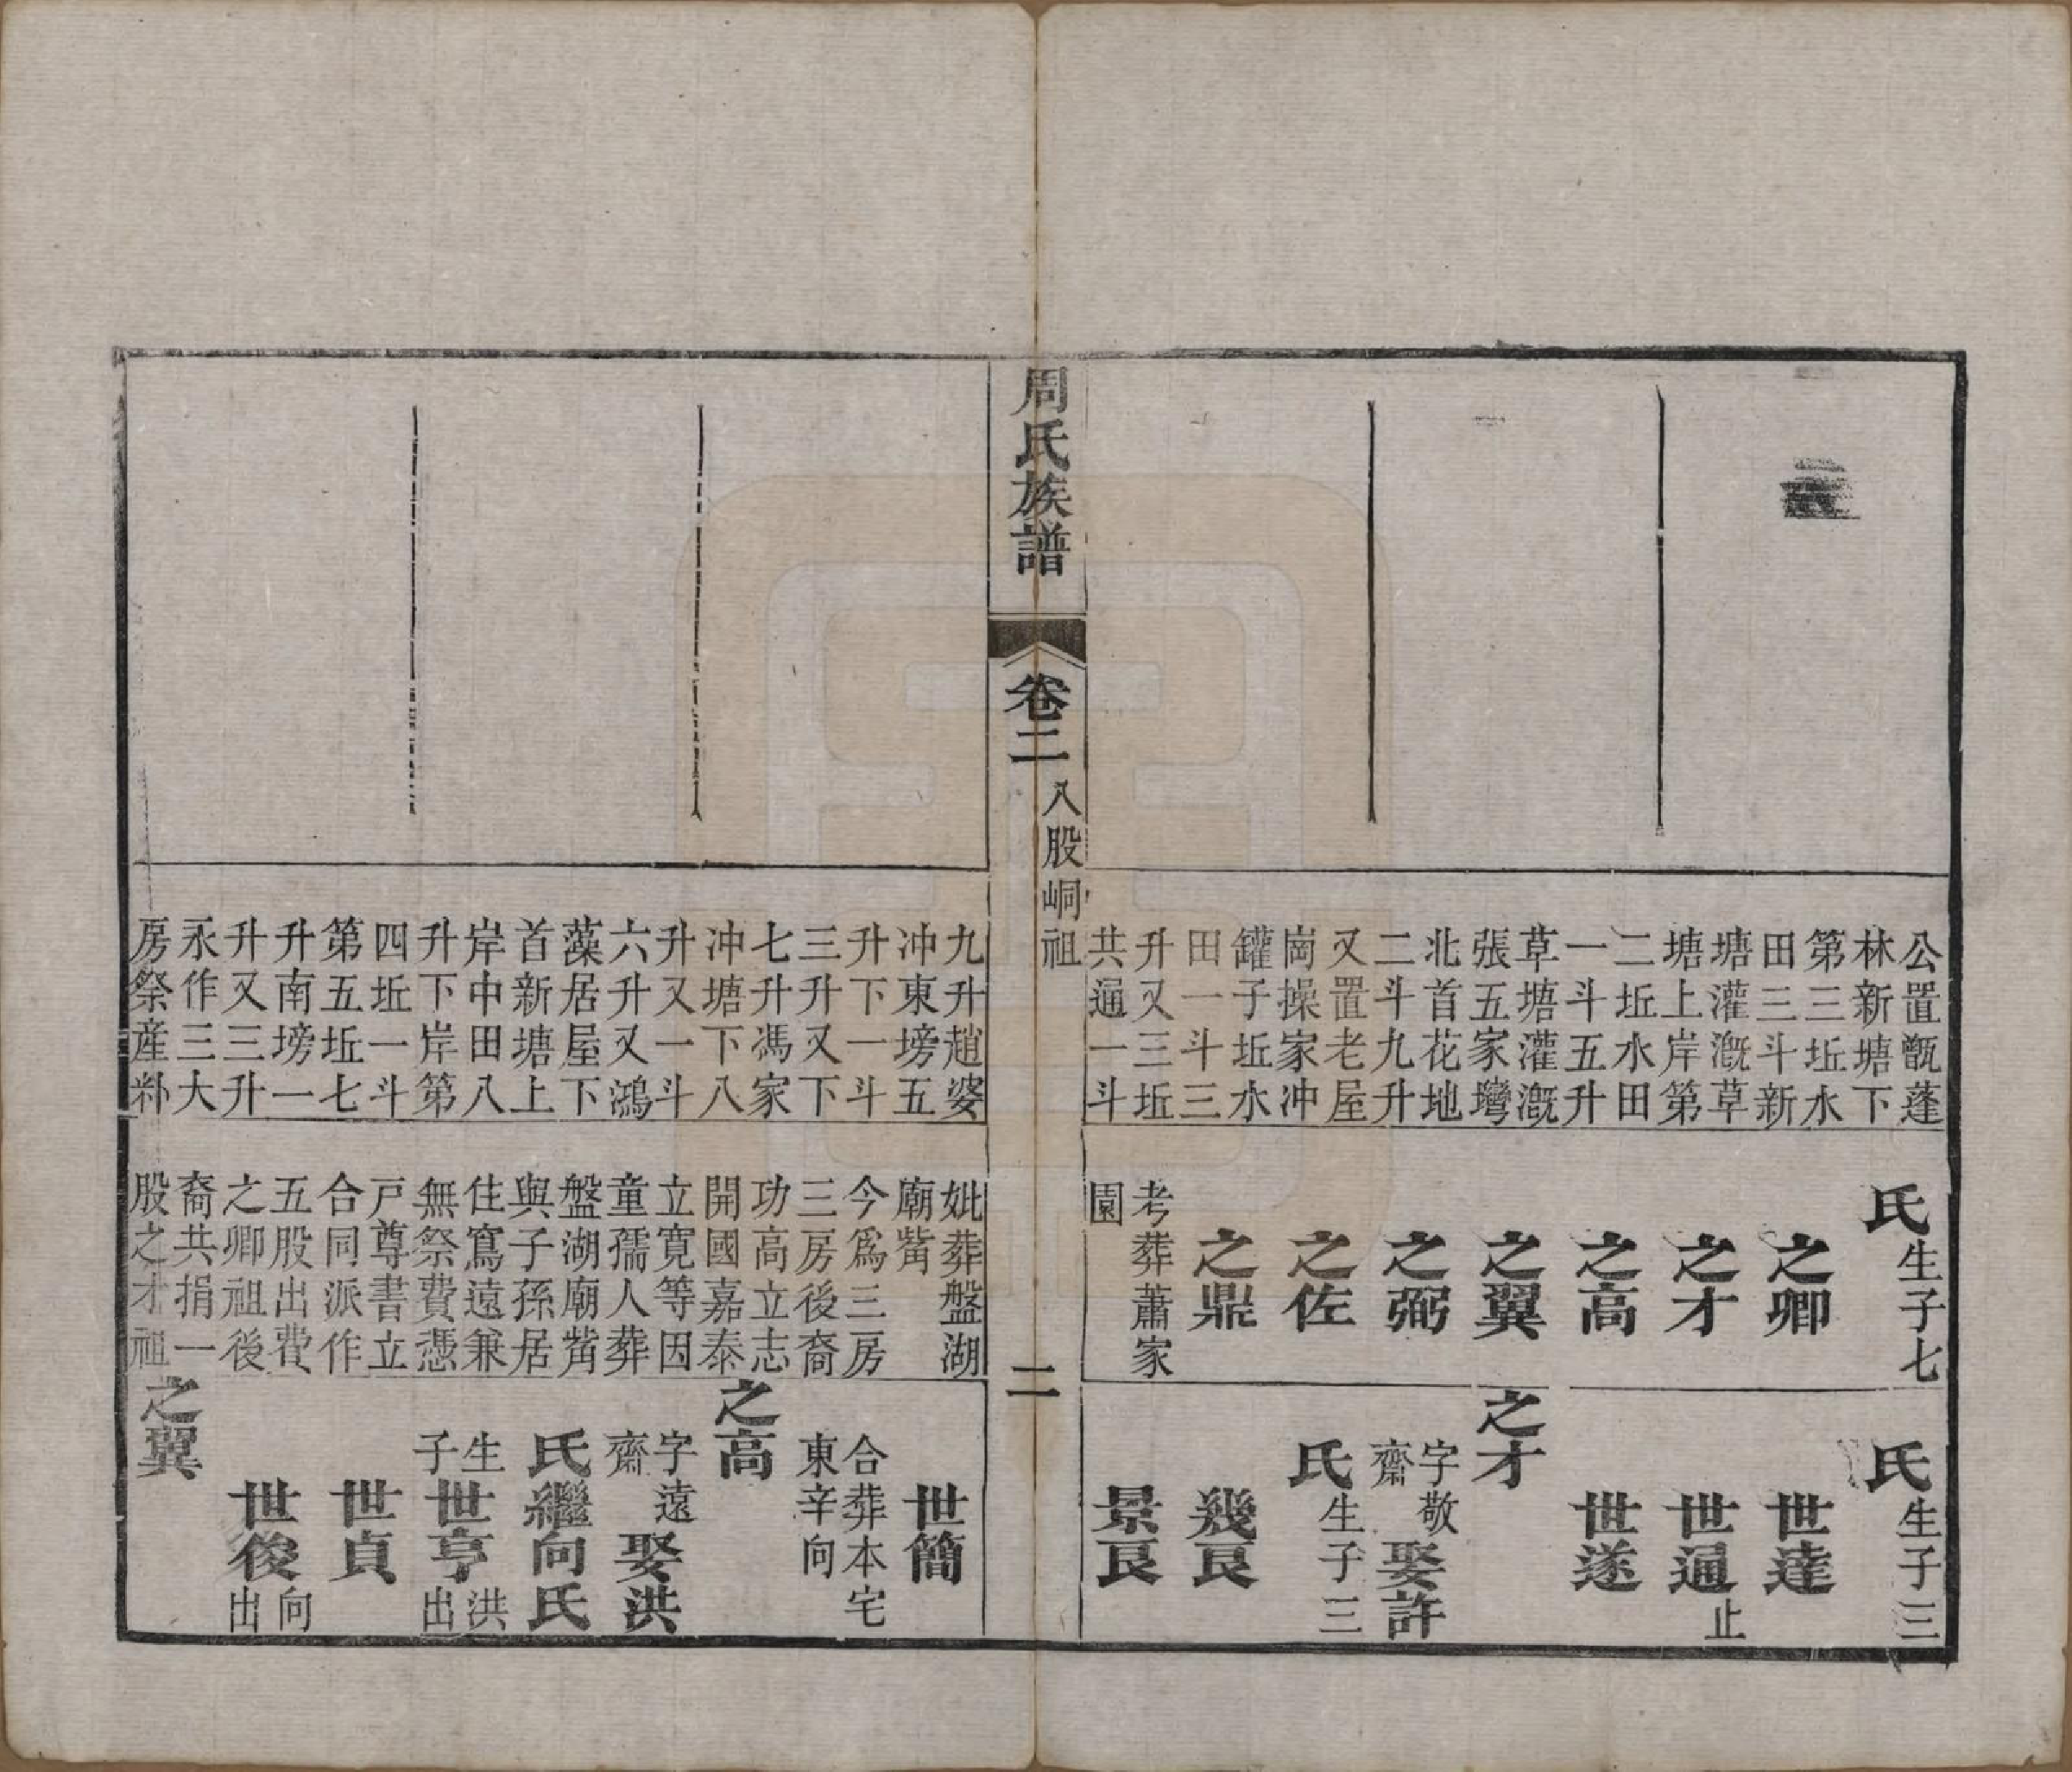 公置甑蓬
林新塘下
第三坵水
田三斗新
塘灌溉草
塘上岸第
二坵水田
一斗五升
草塘灌溉
張五家灣
北首花地
二斗九升
又置老屋
崗操家冲
罐子坵水
田一斗三
升又三坵
共通一斗
氏生子七
之卿
之才
之高
之翼
之弼
之佐
之鼎
考葬蕭家
園
氏生子三
世達
世通止
世遂
之才
字敬
齋
娶許
氏生子三
幾良
景良
周氏族譜
卷二
八股峒祖
二
九升趙婆
冲東塝五
升下一斗
三升又下
七升馮家
冲塘下八
升又一斗
六升又鴻
藻居屋下
首新塘上
岸中田八
升下岸第
四坵一斗
第五坵七
升南塝一
升又三升
永作三大
房祭産
妣葬盤湖
廟觜
今爲三房
三房後裔
功高立志
開國嘉泰
立寬等因
童孺人葬
盤湖廟觜
與子孫居
住窵遠兼
無祭費憑
戸尊書立
合同派作
五股出費
之卿祖後
裔共捐一
股之才祖
世簡
合葬本宅
東辛向
之高
字遠
齋
娶洪
氏繼向氏
生
子
世亨
洪
出
世貞
世俊
向
出
之翼